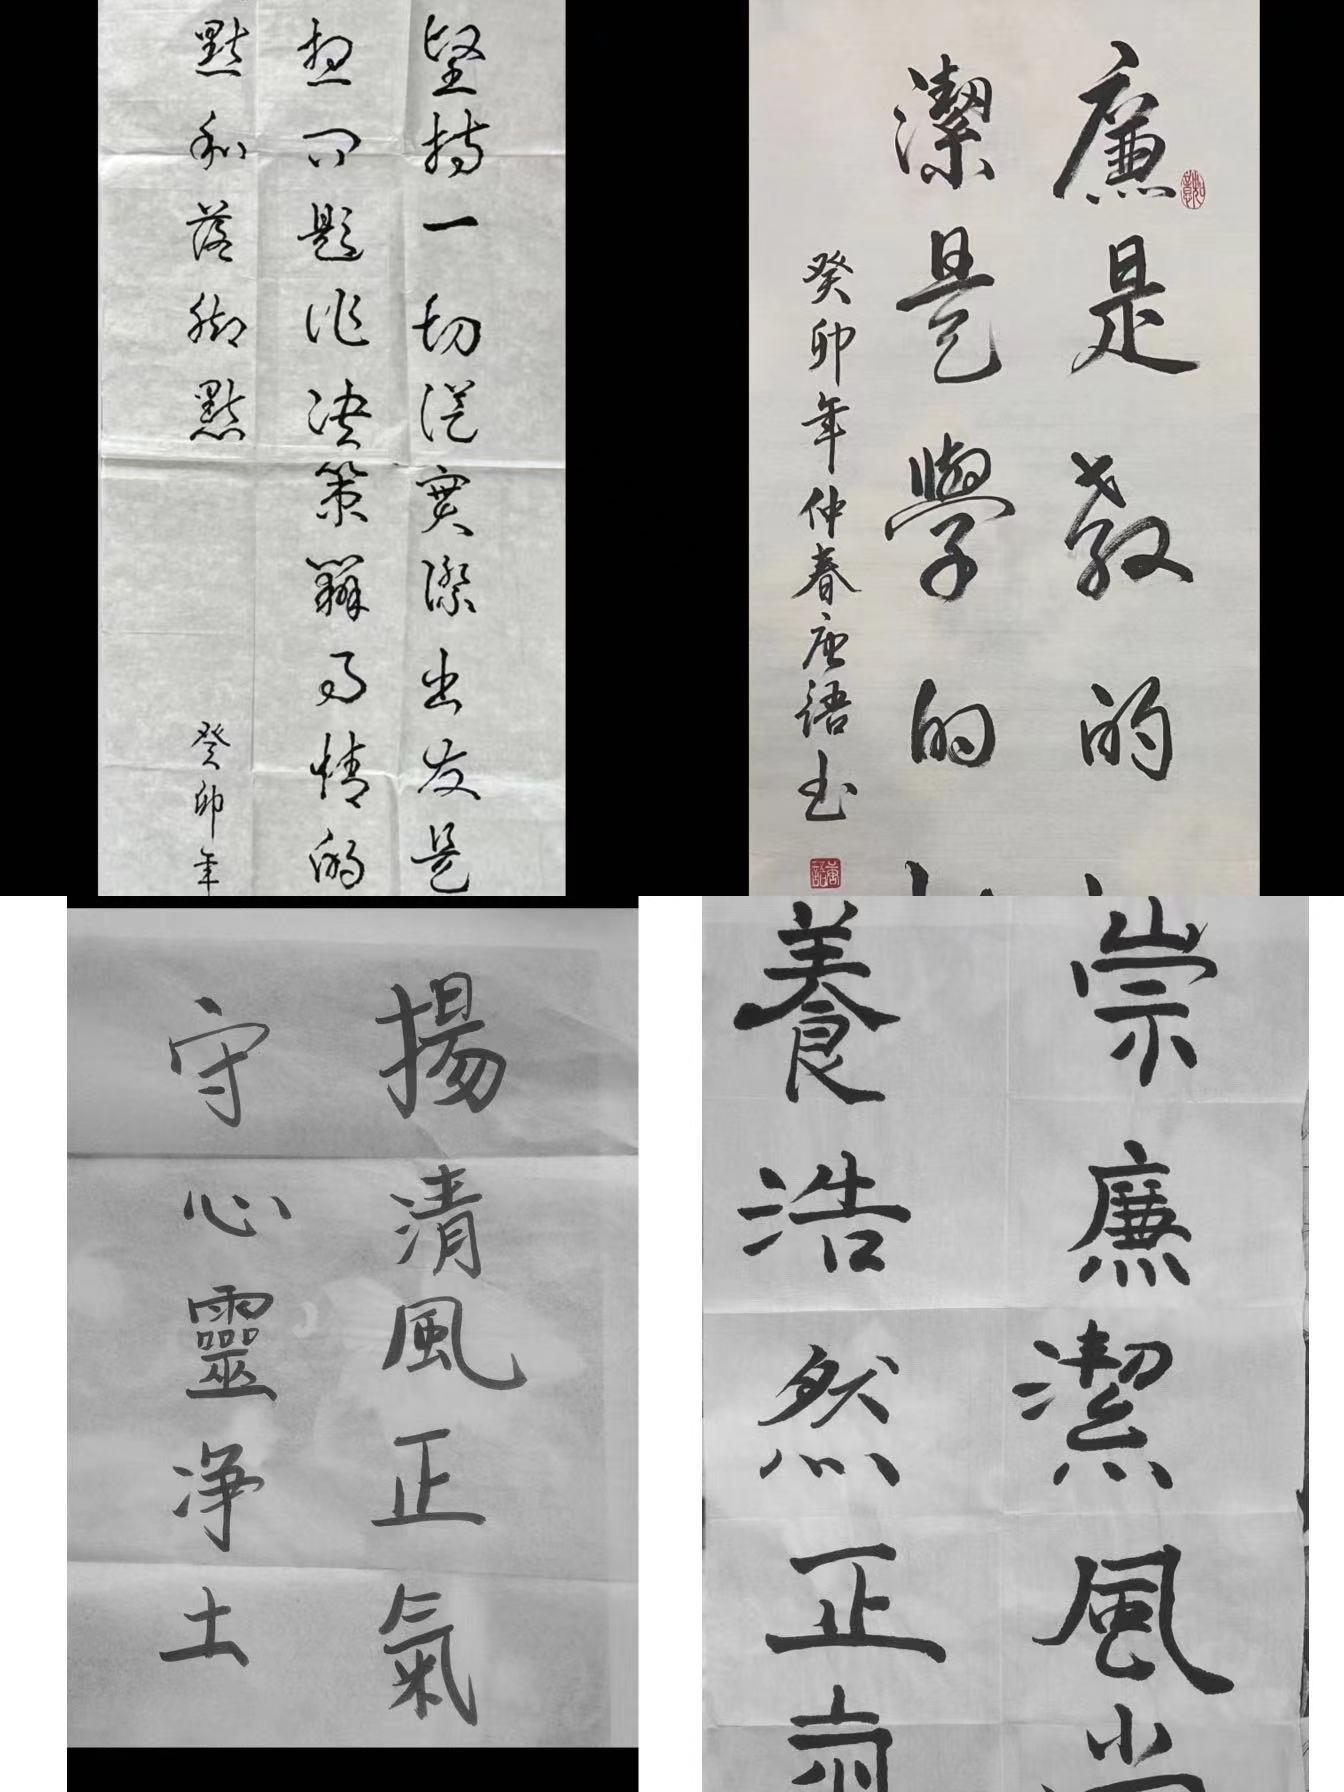 堅持一切從實際出发是
想问題作决策辦事情的
點和落脚點
癸卯年
廉是教的
潔是學的
癸卯年仲春唐語书
揚清風正氣
守心靈净土
崇廉潔風尚
養浩然正氣